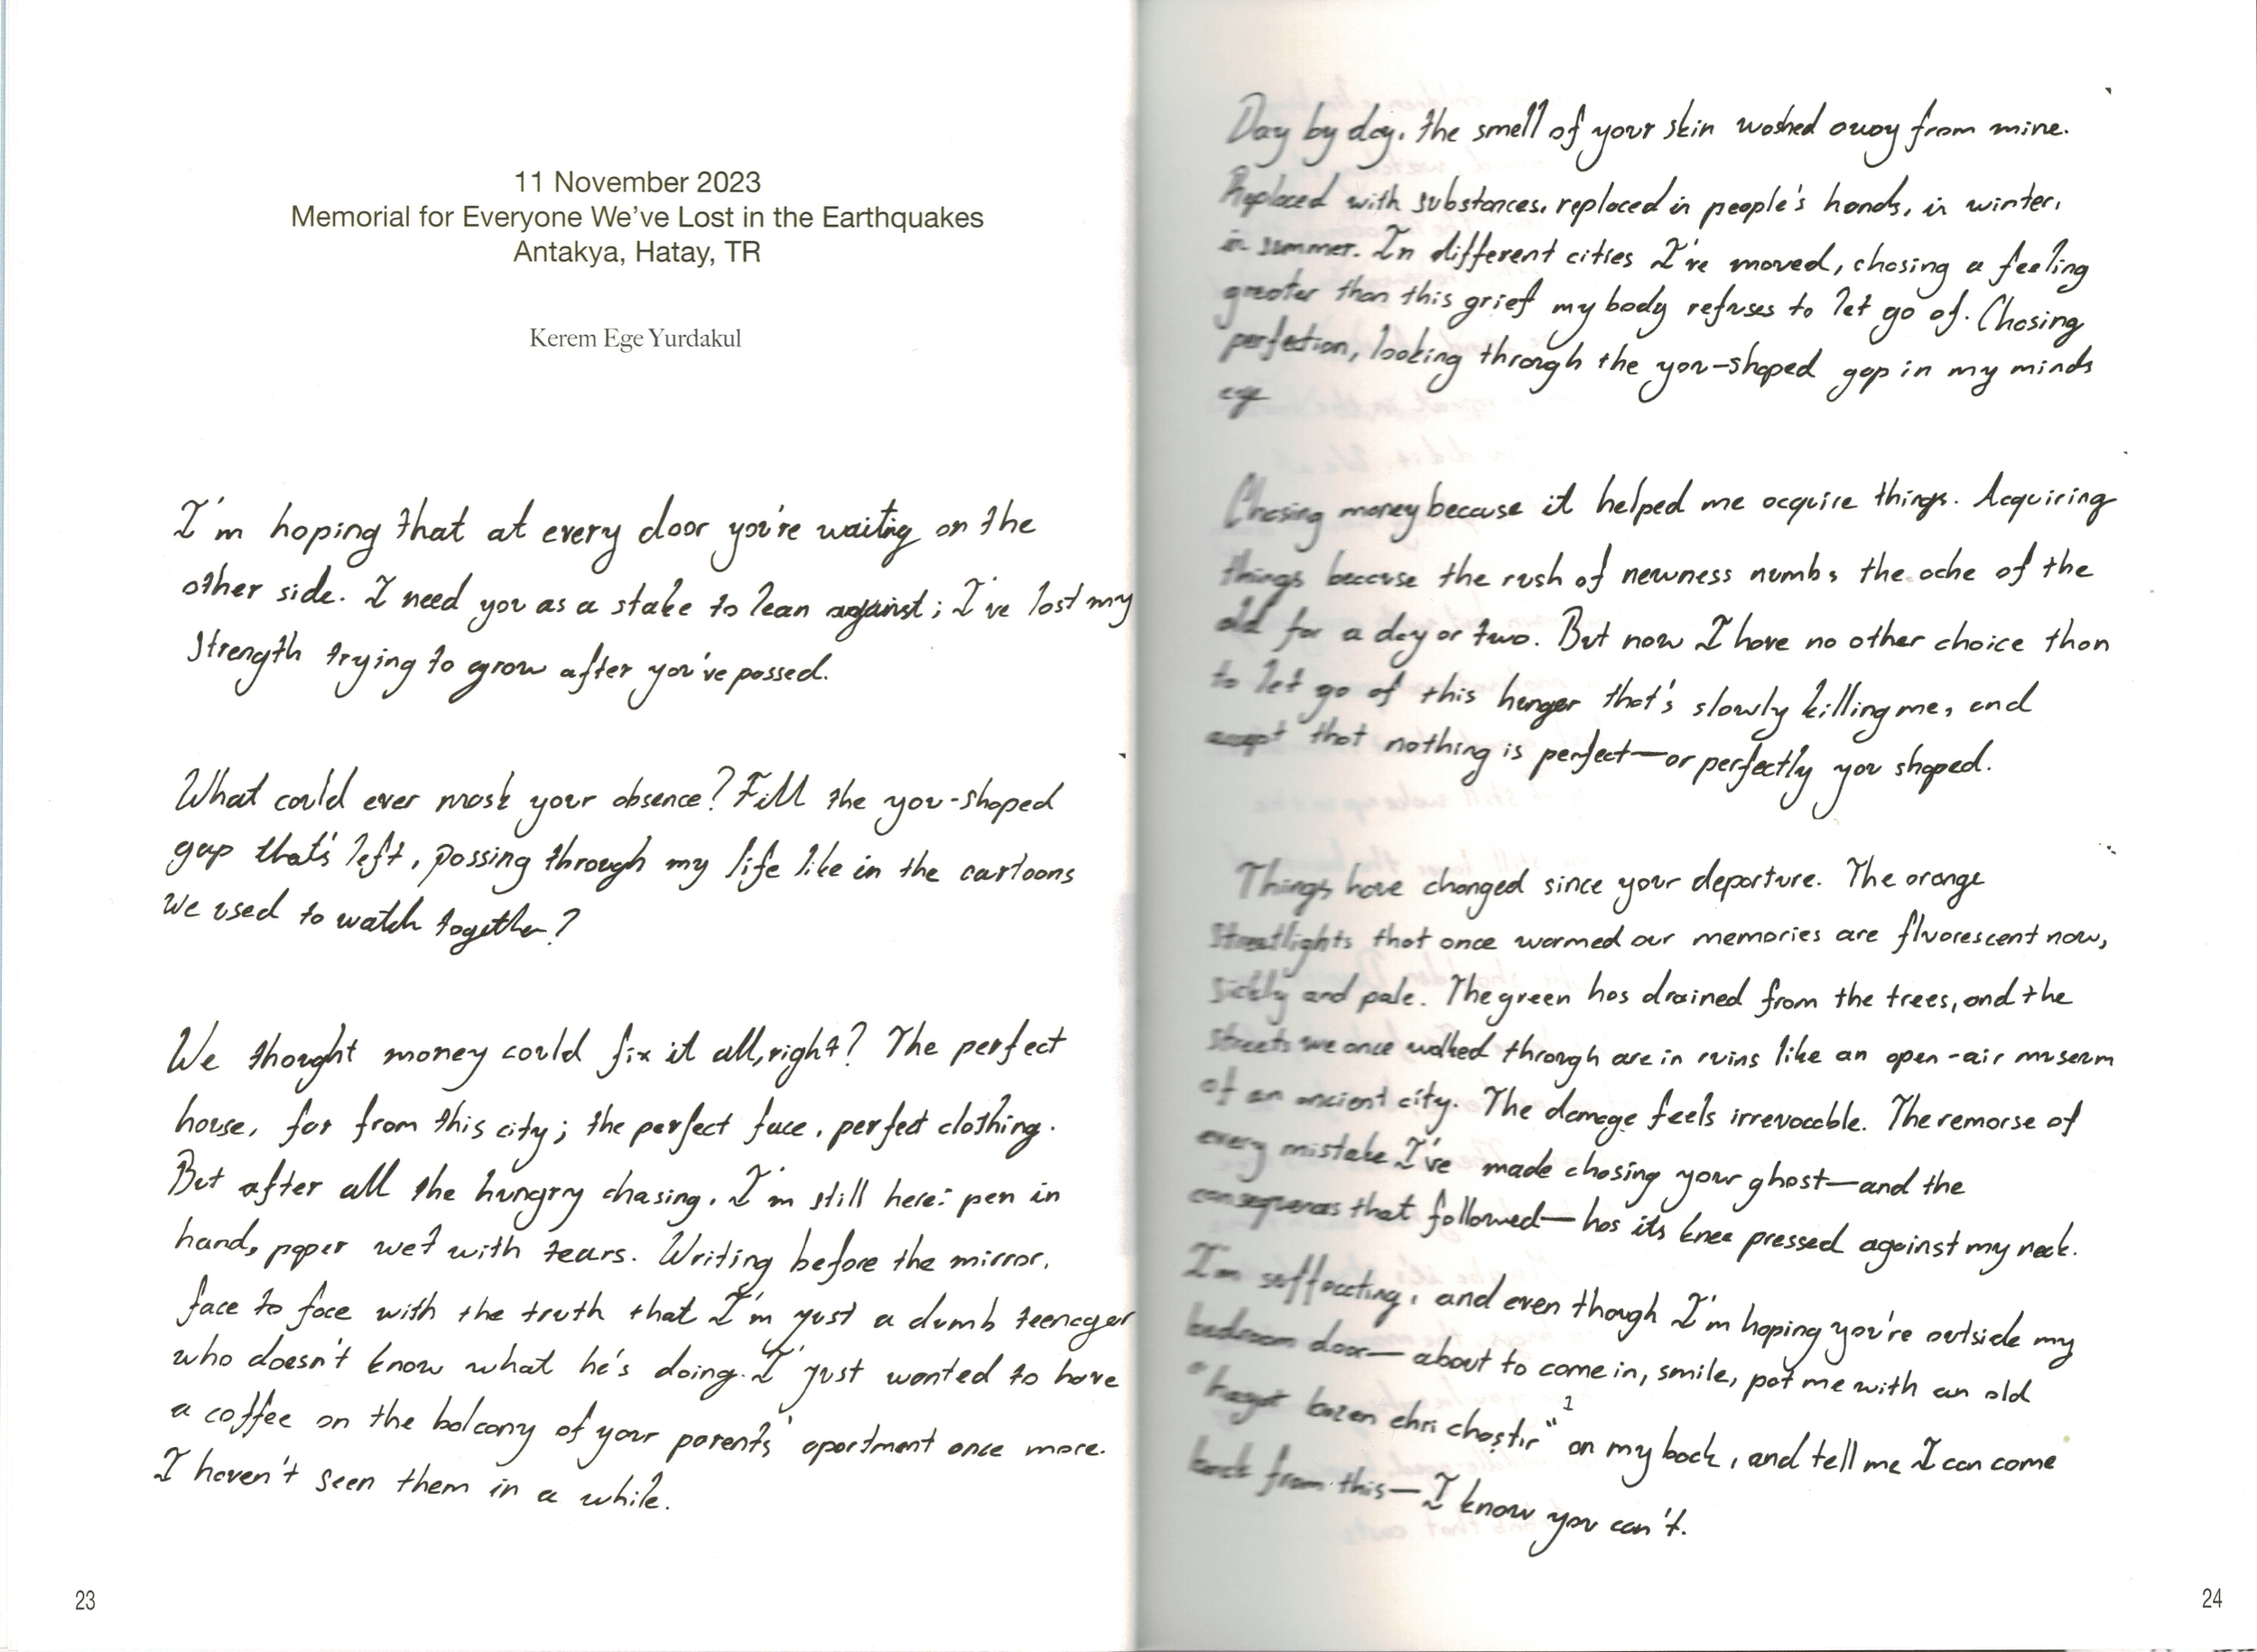 11 November 2023
Memorial for Everyone We've Lost in the Earthquakes
Antakya, Hatay, TR
Kerem Ege Yurdakul
I'm hoping that at every door you're waiting on the
other side. I need you as a stake to lean against; I've lost my
strength trying to grow after you've passed.
What could ever mask your absence? Fill the you-shaped
gap that's left, passing through my life like in the cartoons
we used to watch together?
We thought money could fix it all, right? The perfect
house, far from this city; the perfect face, perfect clothing.
But after all the hungry chasing, I'm still here: pen in
hand, paper wet with tears. Writing before the mirror,
face to face with the truth that I'm just a dumb teenager
who doesn't know what he's doing. I just wanted to have
a coffee on the balcony of your parents' apartment once more.
I haven't seen them in a while.
23
Day by day, the smell of your skin washed away from mine.
Replaced with substances, replaced in people's hands, in winter,
in summer. In different cities I've moved, chasing a feeling
greater than this grief my body refuses to let go of. Chasing
perfection, looking through the you-shaped gap in my minds
eye
Chasing money because it helped me acquire things. Acquiring
things because the rush of newness numbs the ache of the
old for a day or two. But now I have no other choice than
to let go of this hunger that's slowly killing me, and
accept that nothing is perfect—or perfectly you shaped.
Things have changed since your departure. The orange
streetlights that once warmed our memories are fluorescent now,
sickly and pale. The green has drained from the trees, and the
streets we once walked through are in ruins like an open-air museum
of an ancient city. The damage feels irrevocable. The remorse of
every mistake I've made chasing your ghost—and the
consequences that followed—has its knee pressed against my neck.
I'm suffocating, and even though I'm hoping you're outside my
bedroom door—about to come in, smile, pat me with an old
"hayat bazen ehri chaştir"1 on my back, and tell me I can come
back from this—I know you can't.
24